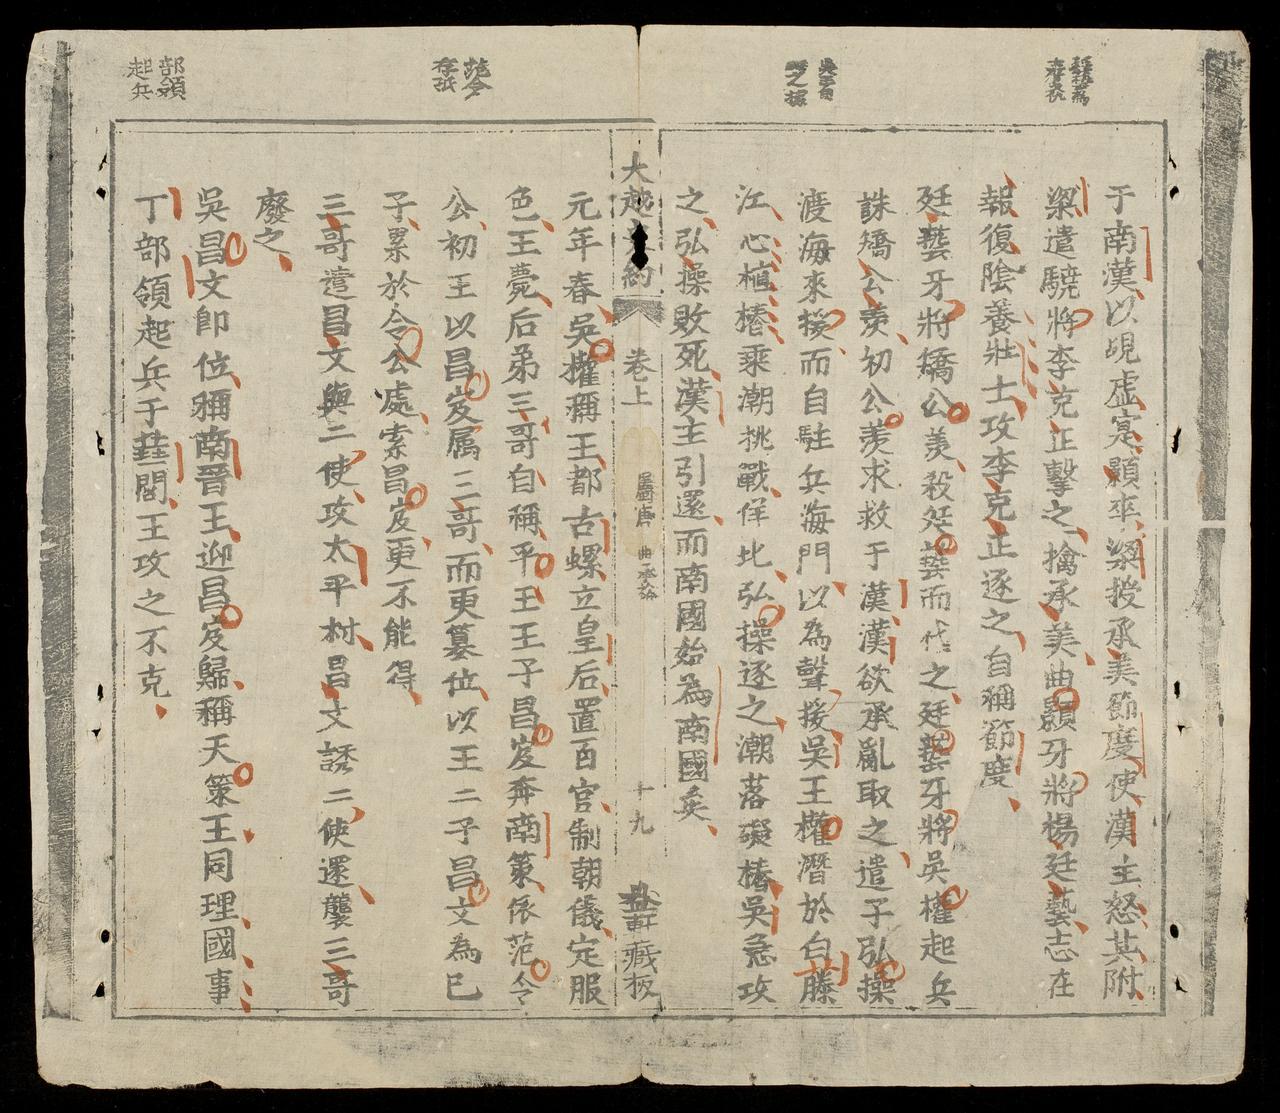 于南漢以覘虛寔顥卒梁授承美節度使漢主怒其附
梁遣驍將李克正擊之擒承美曲顥牙將楊廷藝志在
報復陰養壯士攻李克正逐之自稱節度
廷藝牙將矯公羨殺廷藝而代之廷藝牙將吳權起兵
誅矯公羨初公羨求救于漢漢欲承亂取之遣子弘操
渡海來援而自駐兵海門以為聲援吳王權潛於白藤
江心植樁乘潮挑戰佯北弘操逐之潮落礙樁吳急攻
之弘操敗死漢主引還而南國始為南國矣
大越 約 卷上 屬唐 曲承 十九 軒藏板
元年春吳權稱王都古螺立皇后置百官制朝儀定服
色王薨后弟三哥自稱平王王子昌岌奔南策依范令
公初王以昌岌属三哥而更篡位以王二子昌文為已
子累於令公處索昌岌更不能得
三哥遣昌文與二使攻太平村昌文誘二使還襲三哥
廢之
吳昌文即位稱南晋王迎昌岌歸稱天策王同理國事
丁部領起兵于華閭王攻之不克
范令
存孤
部領
起兵